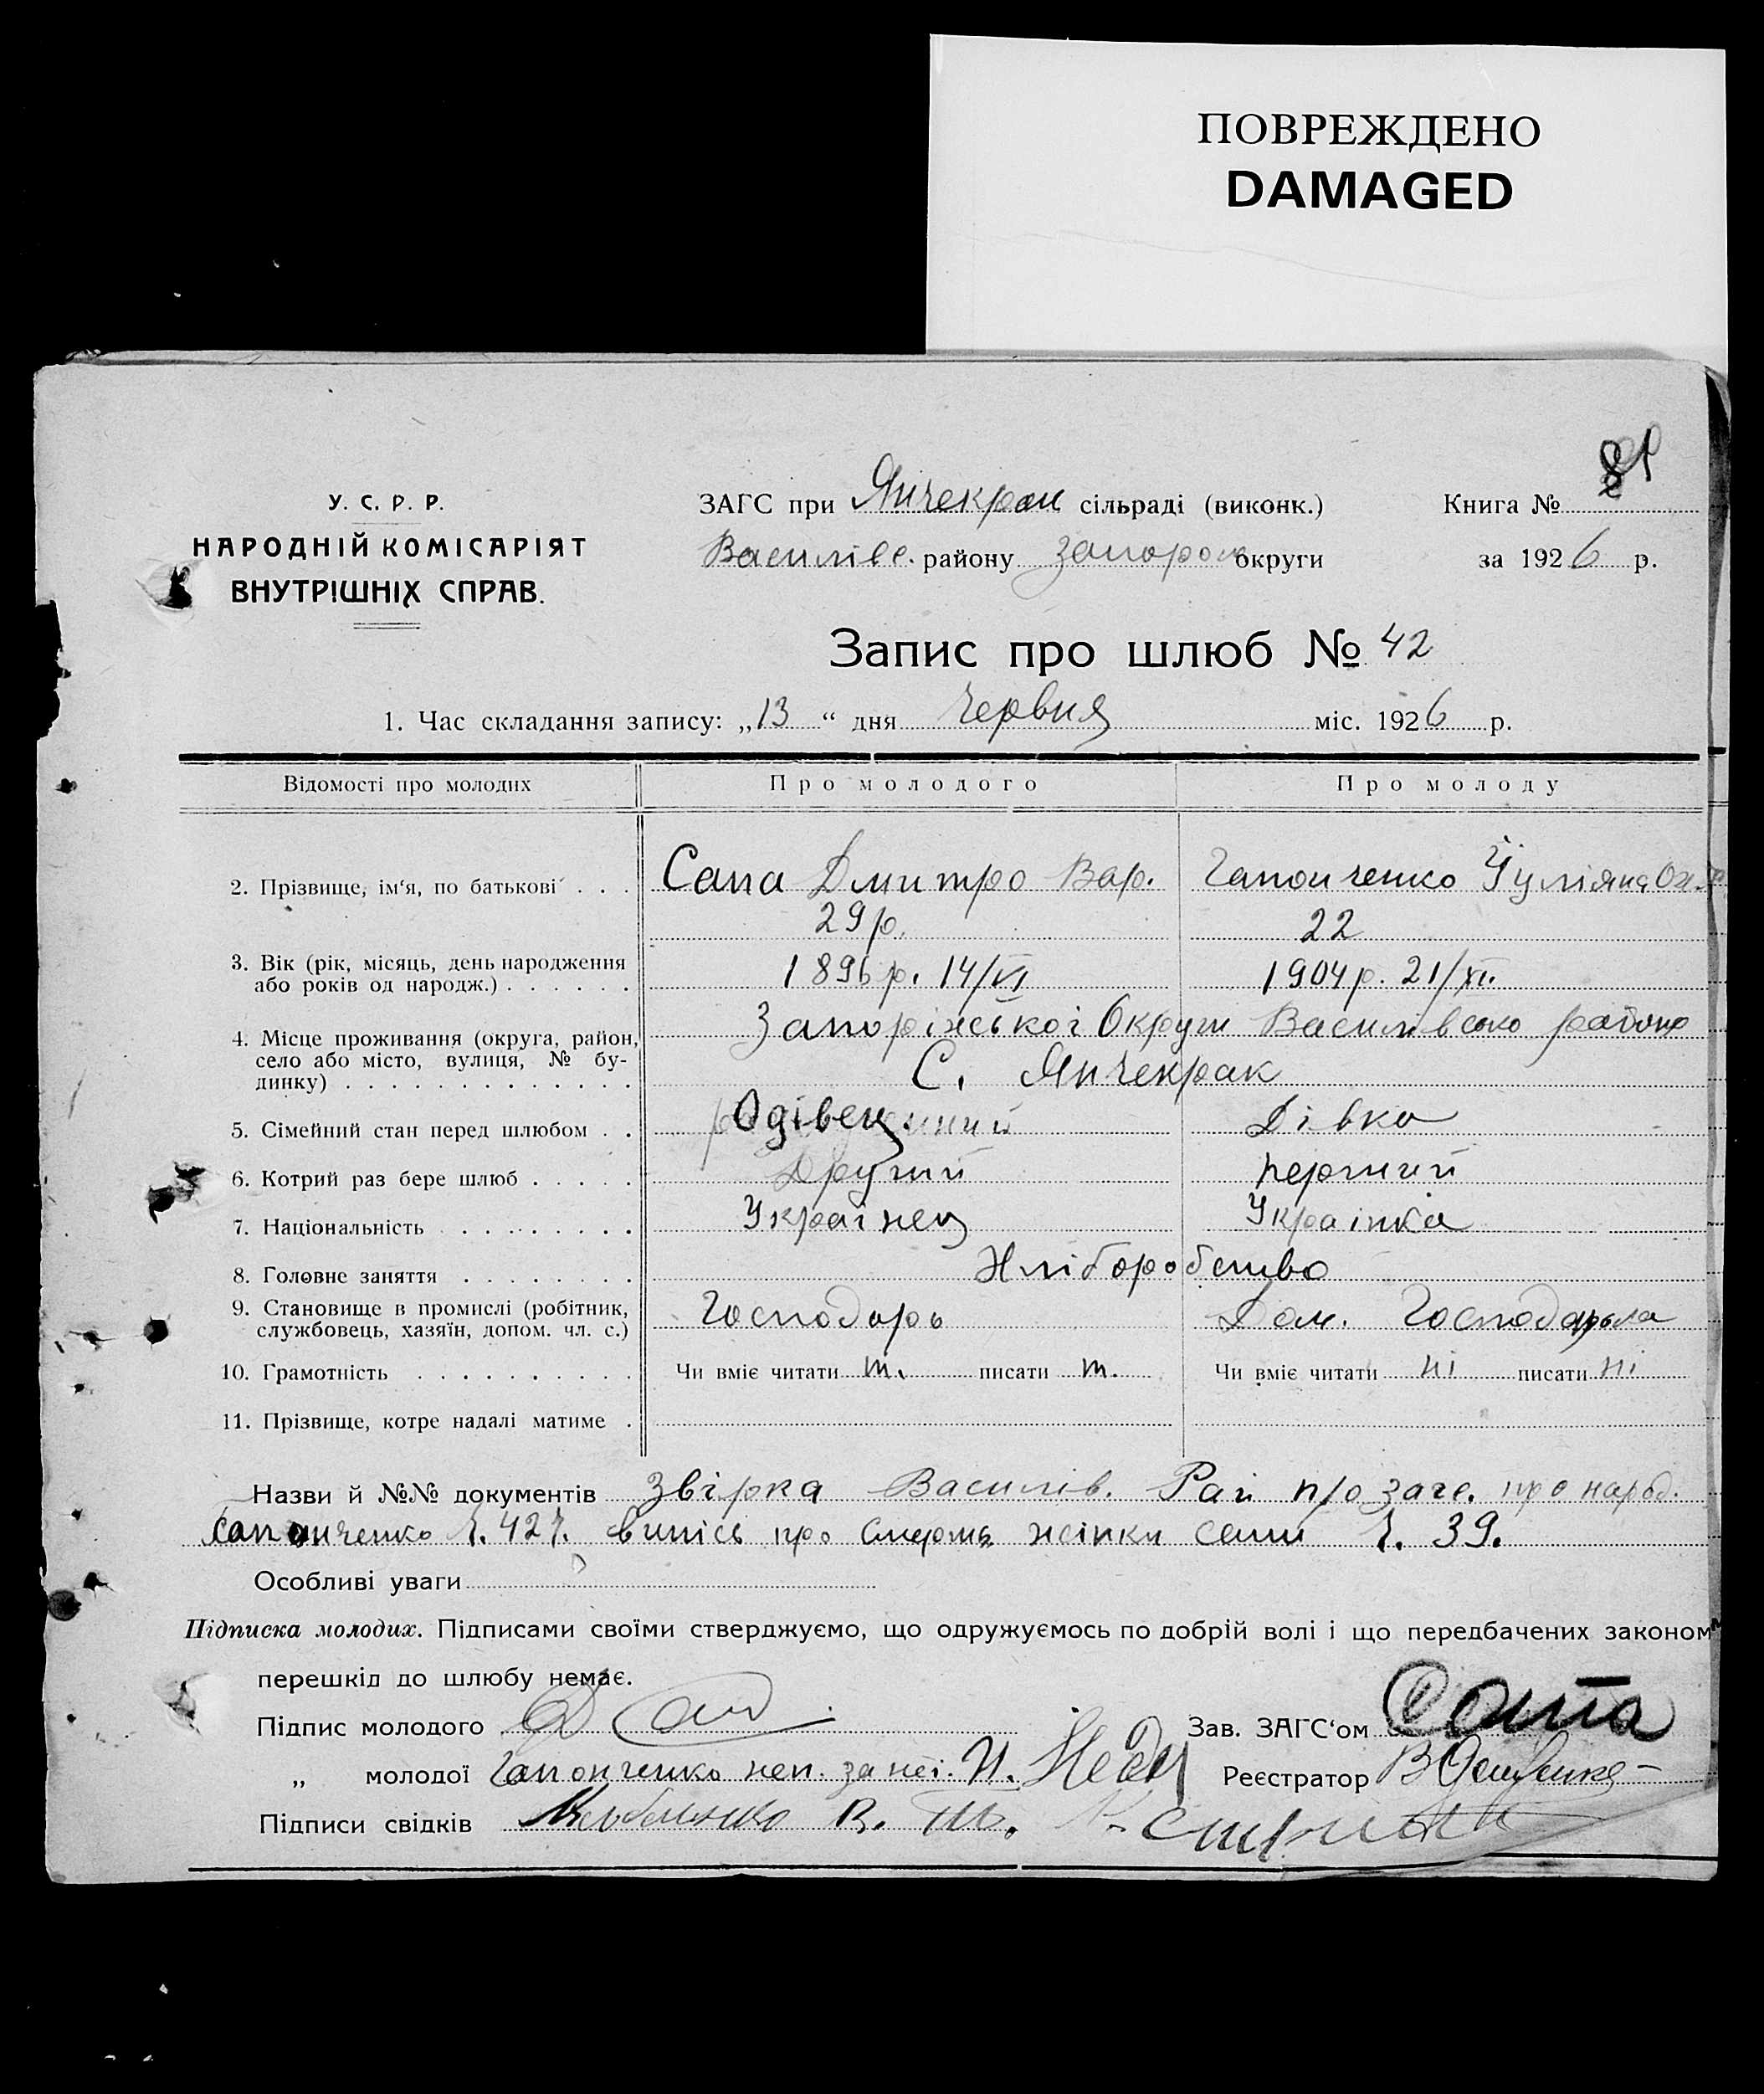 ПОВРЕЖДЕНО
DAMAGED
У. С. Р. Р.
НАРОДНІЙ КОМІСАРІЯТ
ВНУТРІШНІХ СПРАВ.
ЗАГС при Янчекрак сільраді (виконк.)
Книга №
Василівс. району Запороз округи
за 1926 р.
Запис про шлюб № 42
1. Час складання запису: „13“ дня червня міс. 1926 р.
Відомості про молодих
Про молодого
Про молоду
2. Прізвище, ім‘я, по батькові . . .
Сапа Дмитро Вар.
29 р.
Гапонченко Уляна
22
3. Вік (рік, місяць, день народження
або років од народж.) . . . . . .
1896 р. 14/VI
1904 р. 21/XI.
4. Місце проживання (округа, район,
село або місто, вулиця, № бу-
динку) . . . . . . . . . . . . .
Запоріжської Округи Василівсько району
С. Янчекрак
5. Сімейний стан перед шлюбом . .
Одівец
Дівка
6. Котрий раз бере шлюб . . . . .
Другий
перший
7. Національність . . . . . . . . .
Українец
Українка
8. Головне заняття . . . . . . . .
Хліборобство
9. Становище в промислі (робітник,
службовець, хазяїн, допом. чл. с.)
Господарь
Дом. Господарька
10. Грамотність . . . . . . . . . .
Чи вміє читати т. писати т.
Чи вміє читати ні писати ні
11. Прізвище, котре надалі матиме .
Назви й №№ документів звірка Василів. Рай про загс. про народ.
Гапонченко Ч. 427. випісь про смерть жінки Сапи Ч. 39.
Особливі уваги
Підписка молодих. Підписами своїми стверджуємо, що одружуємось по добрій волі і що передбачених законом
перешкід до шлюбу немає.
Підпис молодого
Зав. ЗАГС‘ом Сапа
„ молодої Гапонченко неп. за неї. И.
Реєстратор
Підписи свідків